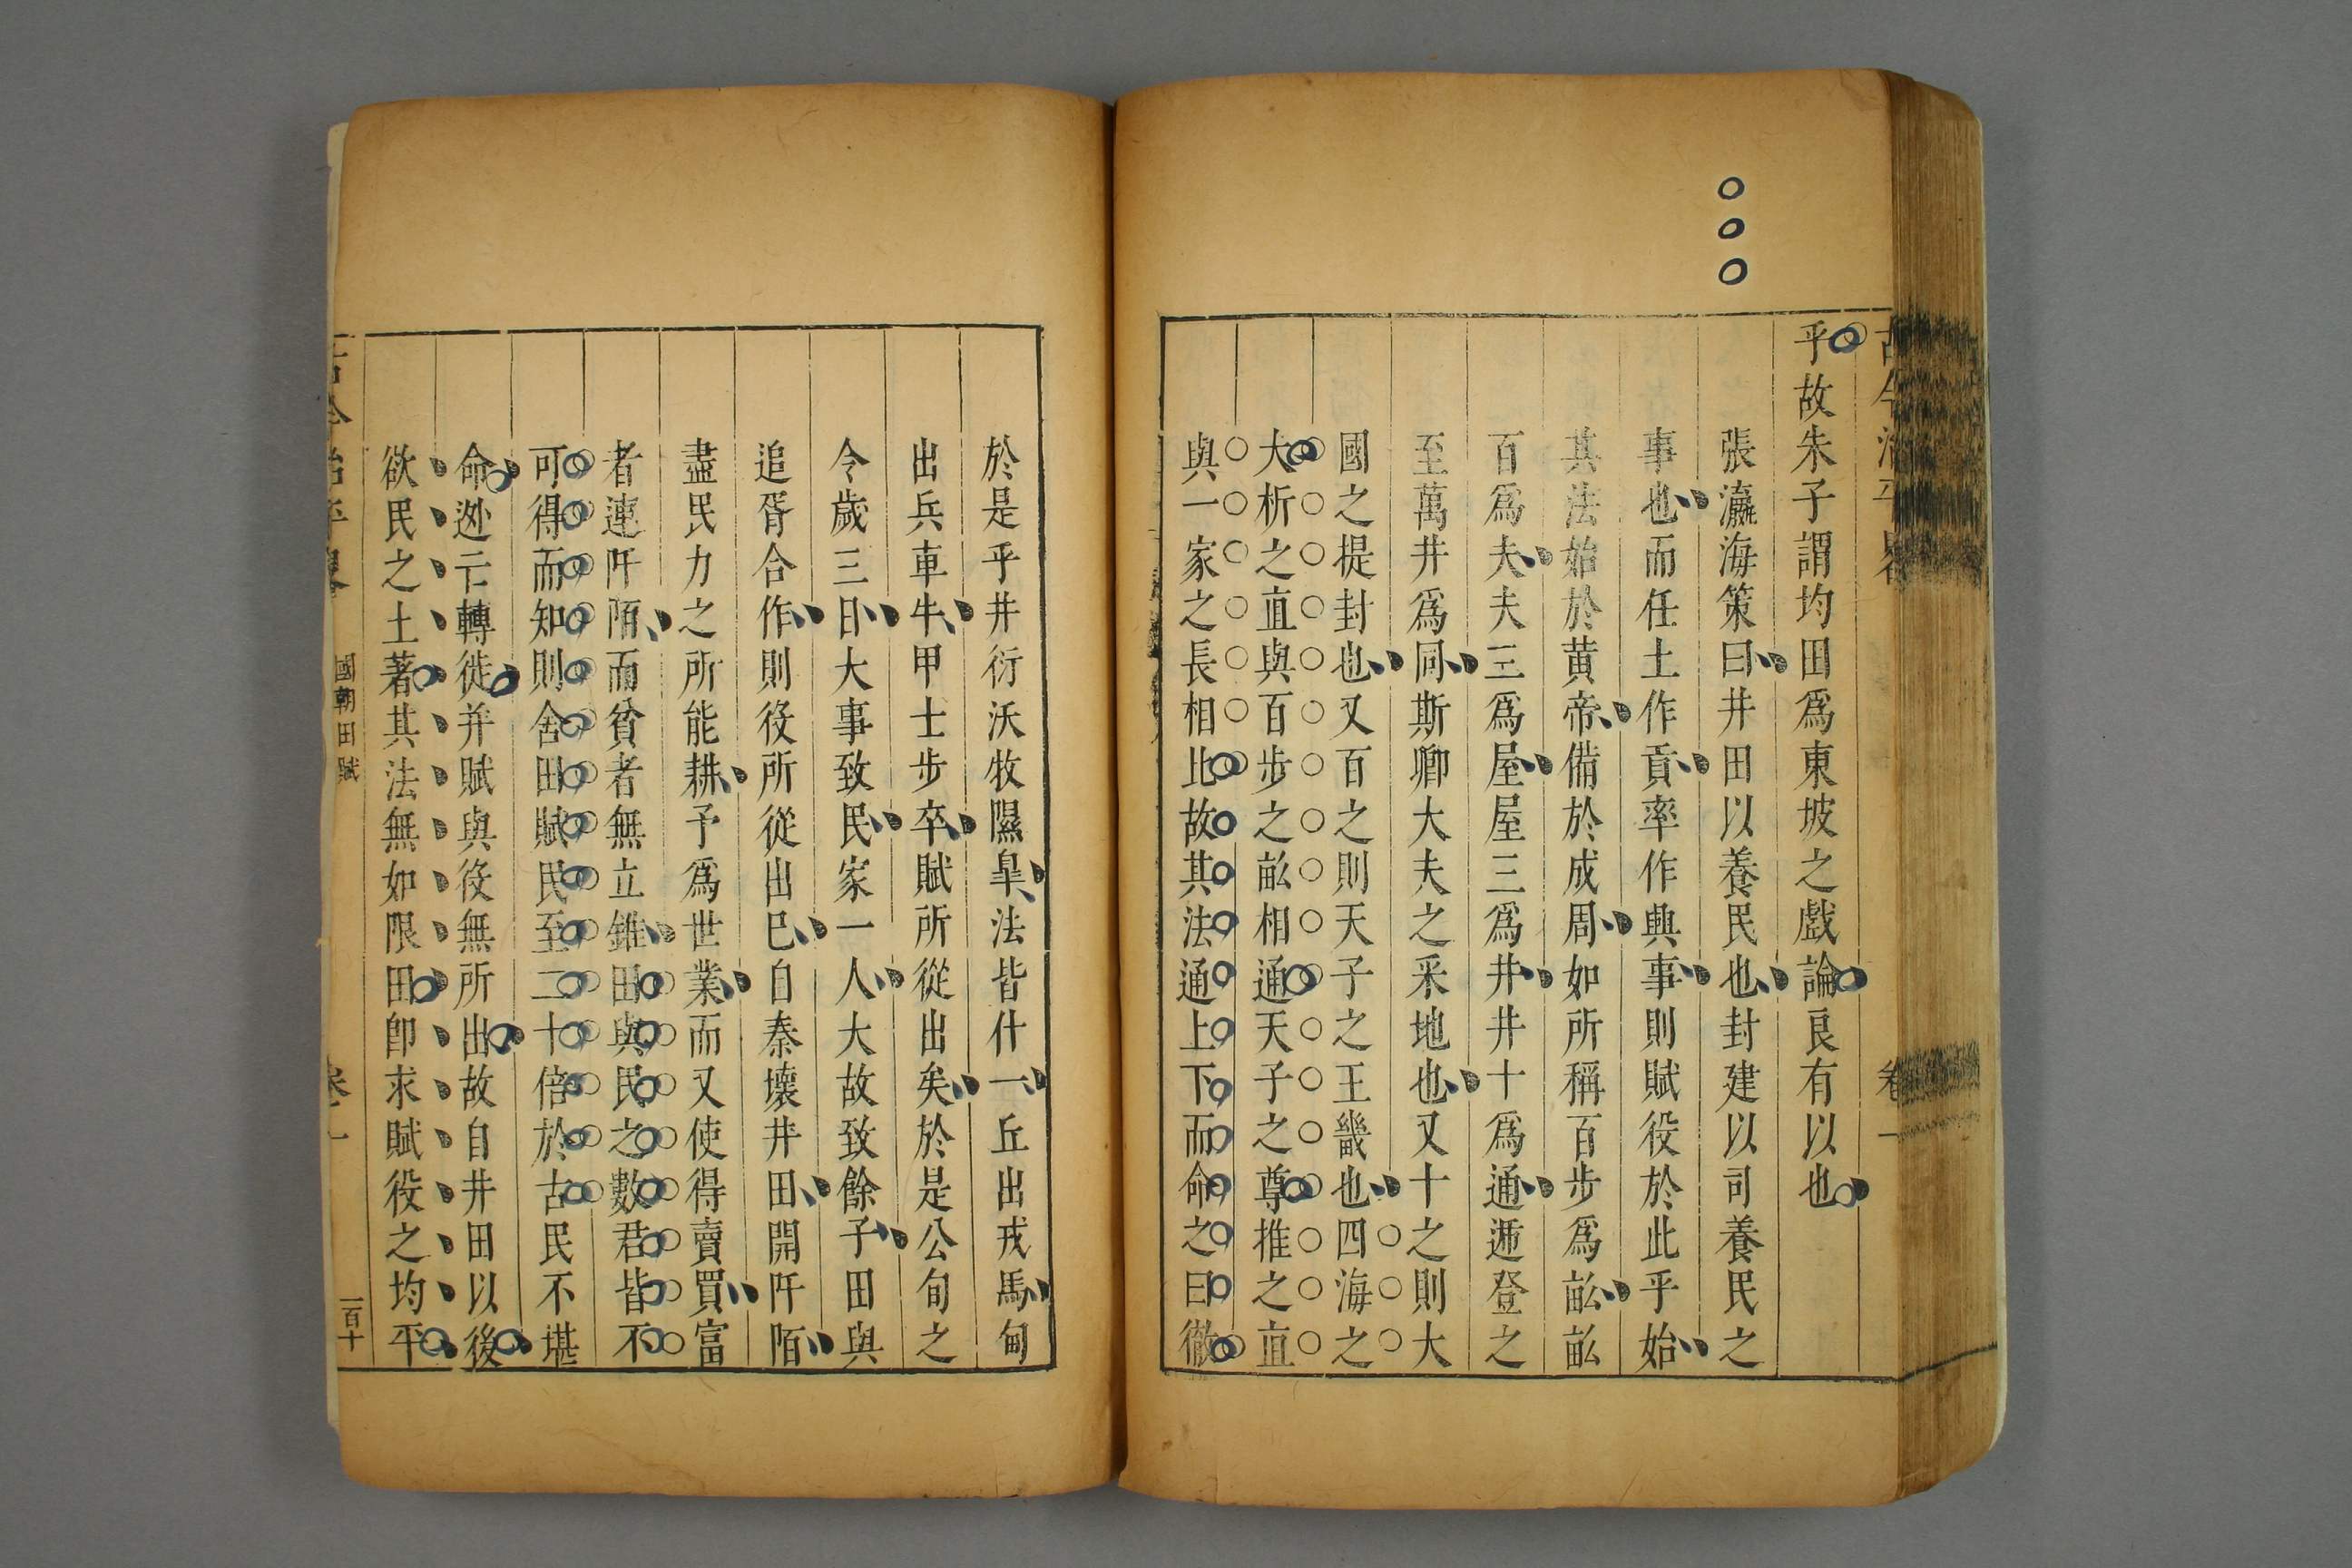 古今治平畧 卷一
乎故朱子謂均田爲東坡之戲論良有以也
張瀛海策曰井田以養民也封建以司養民之
事也而任土作貢率作興事則賦役於此乎始
其法始於黃帝備於成周如所稱百步爲畝畝
百爲夫夫三爲屋屋三爲井井十爲通遞登之
至萬井爲同斯卿大夫之采地也又十之則大
國之提封也又百之則天子之王畿也四海之
大析之直與百步之畝相通天子之尊推之直
與一家之長相比故其法通上下而命之曰徹
於是乎井衍沃牧隰臯法皆什一丘出戎馬甸
出兵車牛甲士步卒賦所從出矣於是公旬之
令歲三日大事致民家一人大故致餘子田與
追胥合作則役所從出巳自秦壞井田開阡陌
盡民力之所能耕予爲世業而又使得賣買富
者連阡陌而貧者無立錐田與民之數君皆不
可得而知則舍田賦民至二十倍於古民不堪
命迯亡轉徙并賦與役無所出故自井田以後
欲民之土著其法無如限田卽求賦役之均平
古今治平畧 國朝田賦 卷一 一百十